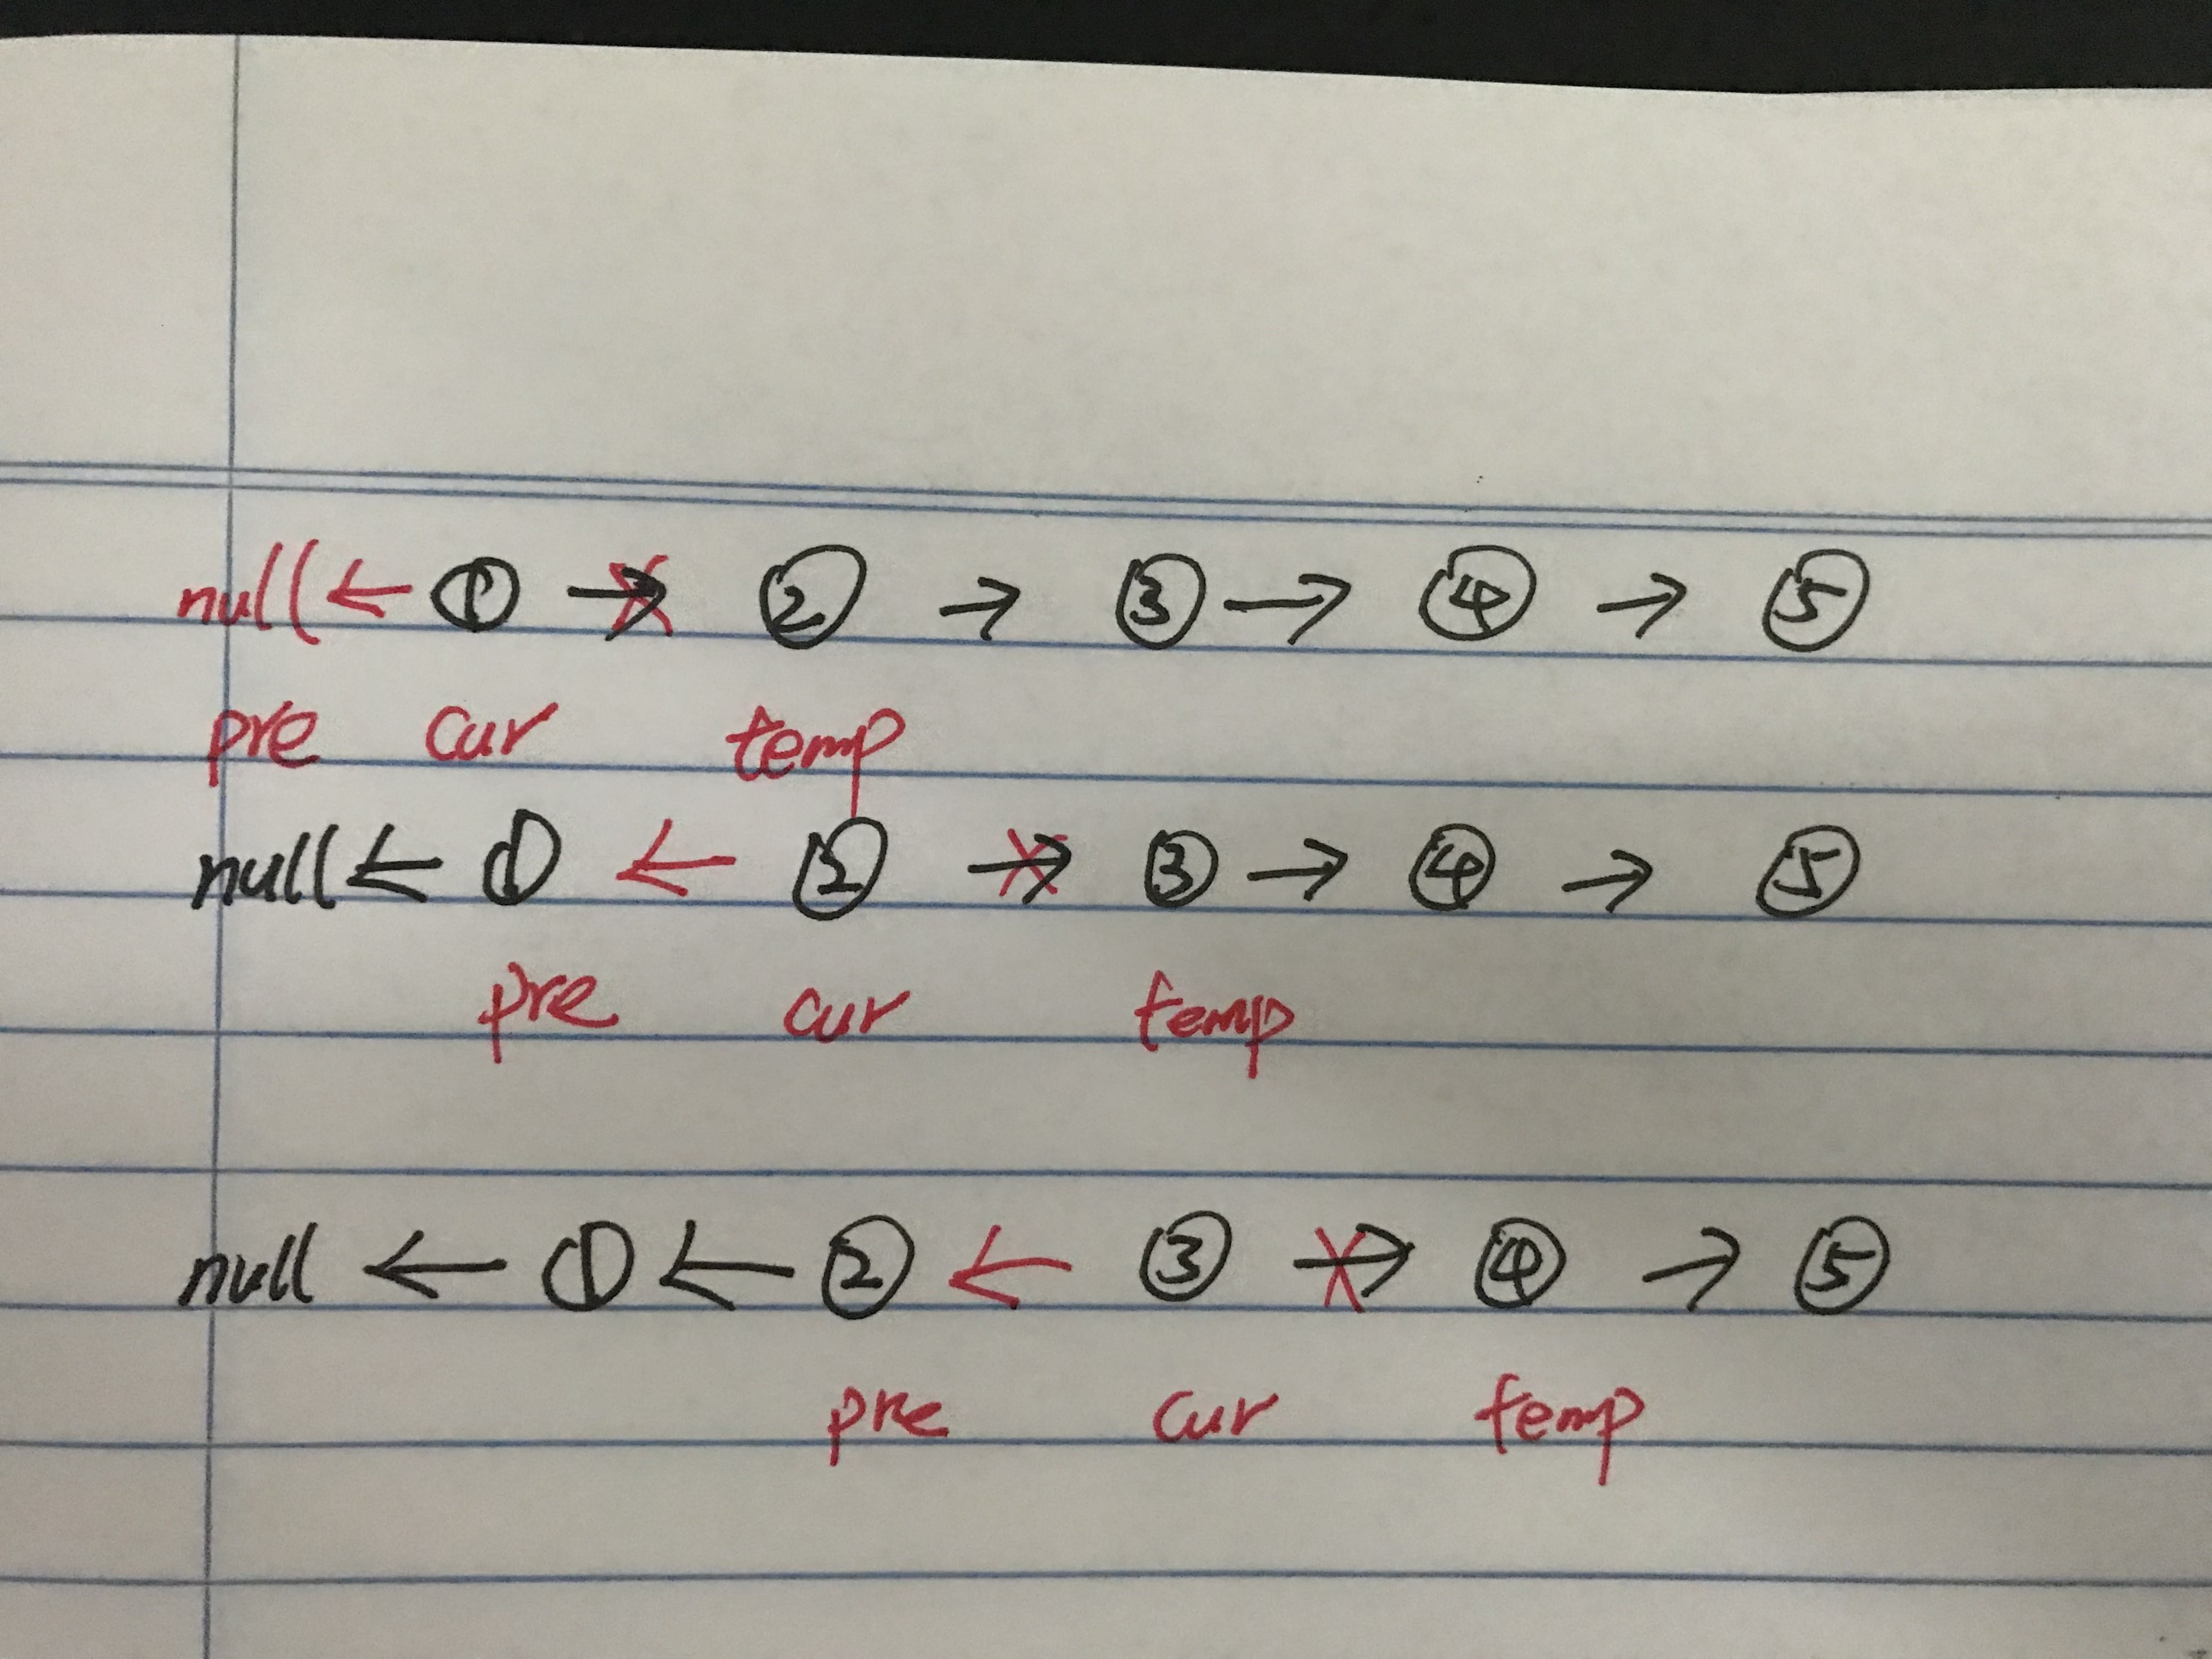 null ← ① → ② → ③ → ④ → ⑤
pre cur temp
null ← ① ← ② → ③ → ④ → ⑤
pre cur temp
null ← ① ← ② ← ③ → ④ → ⑤
pre cur temp